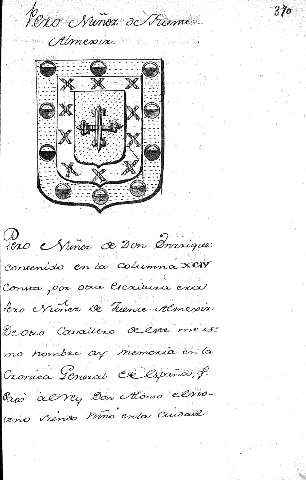 370
Pero Nuñez de Fuente
Almexir
Pero Nuñez de Don Enrrique
contenido en la columna XCIV
consta, por otra escritura era
Pero Nuñez De Fuente Almexir
De otro Cavallero de este meis
mo nombre ay memoria en la
Cronica General de España, q.
al Rey Don Alonso el no
veno siendo Niño en la ciudad